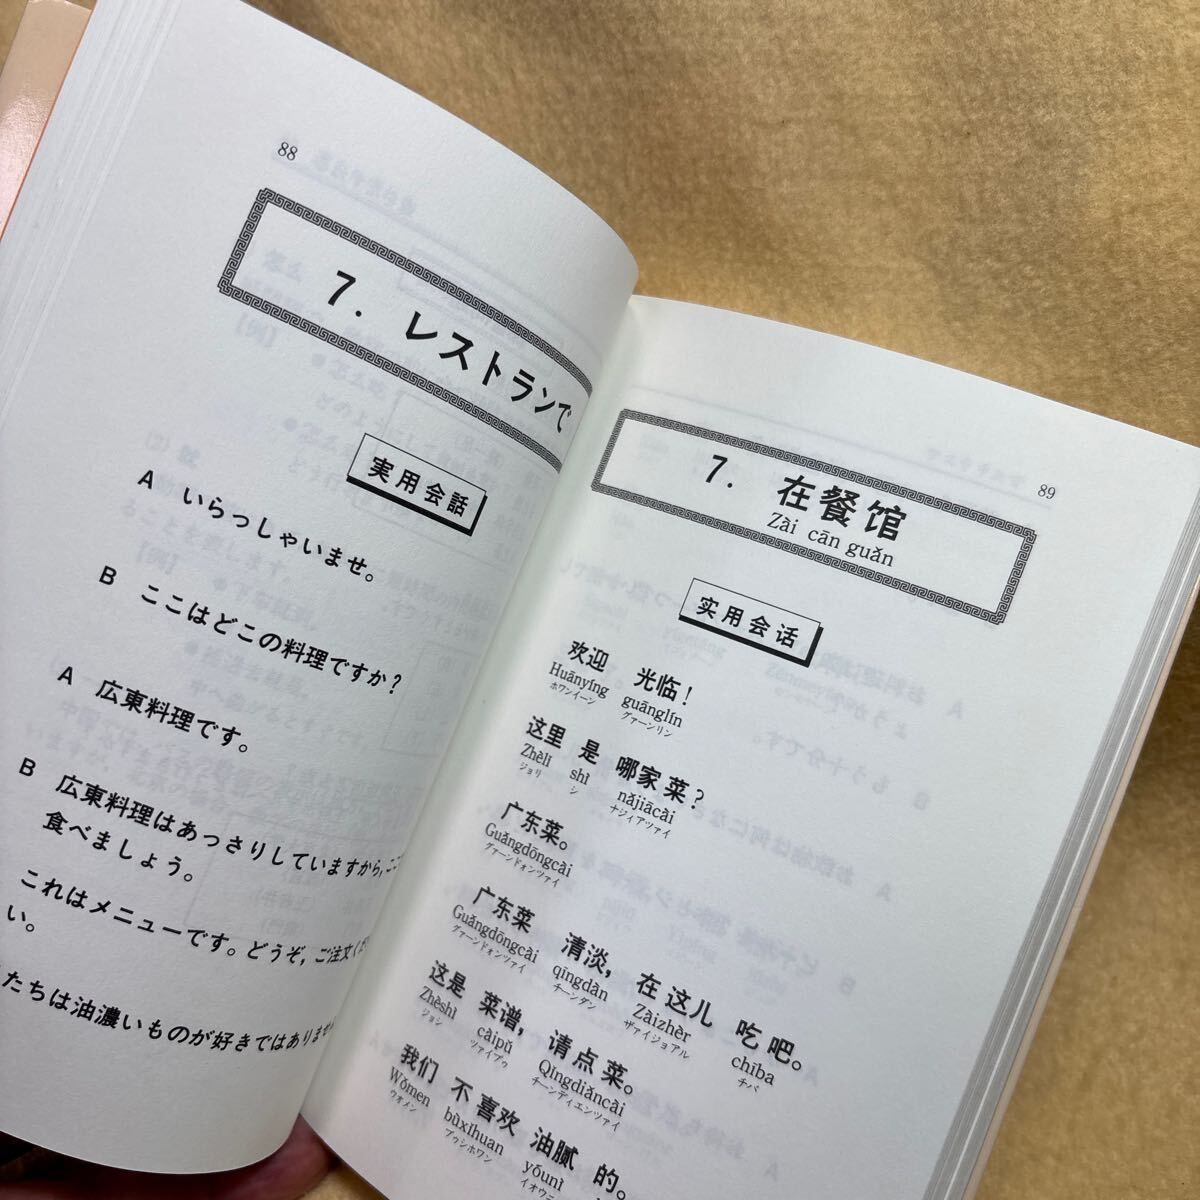 88
7. レストランで
実用会話
A いらっしゃいませ。
B ここはどこの料理ですか?
A 広東料理です。
B 広東料理はあっさりしていますから,ここ
食べましょう。
これはメニューです。どうぞ,ご注文くだ
い。
たちは油濃いものが好きではありませ
89
7. 在餐馆
Zài cān guǎn
实用会话
欢迎 光临!
Huānyíng guānglín
ホワンイーン グァーンリン
这里 是 哪家菜?
Zhèlǐ shì nǎjiācài
ジョリ シ ナジィアツァイ
广东菜。
Guǎngdōngcài
グァーンドォンツァイ
广东菜 清淡, 在这儿 吃吧。
Guǎngdōngcài qīngdàn Zàizhèr chība
グァーンドォンツァイ チーンダン ザァイジョアル チバ
这是 菜谱, 请点菜。
Zhèshì càipǔ Qǐngdiǎncài
ジョシ ツァイプゥ チーンディエンツァイ
我们 不喜欢 油腻 的。
Wǒmen bùxǐhuan yóunì
ウオメン ブゥシホワン